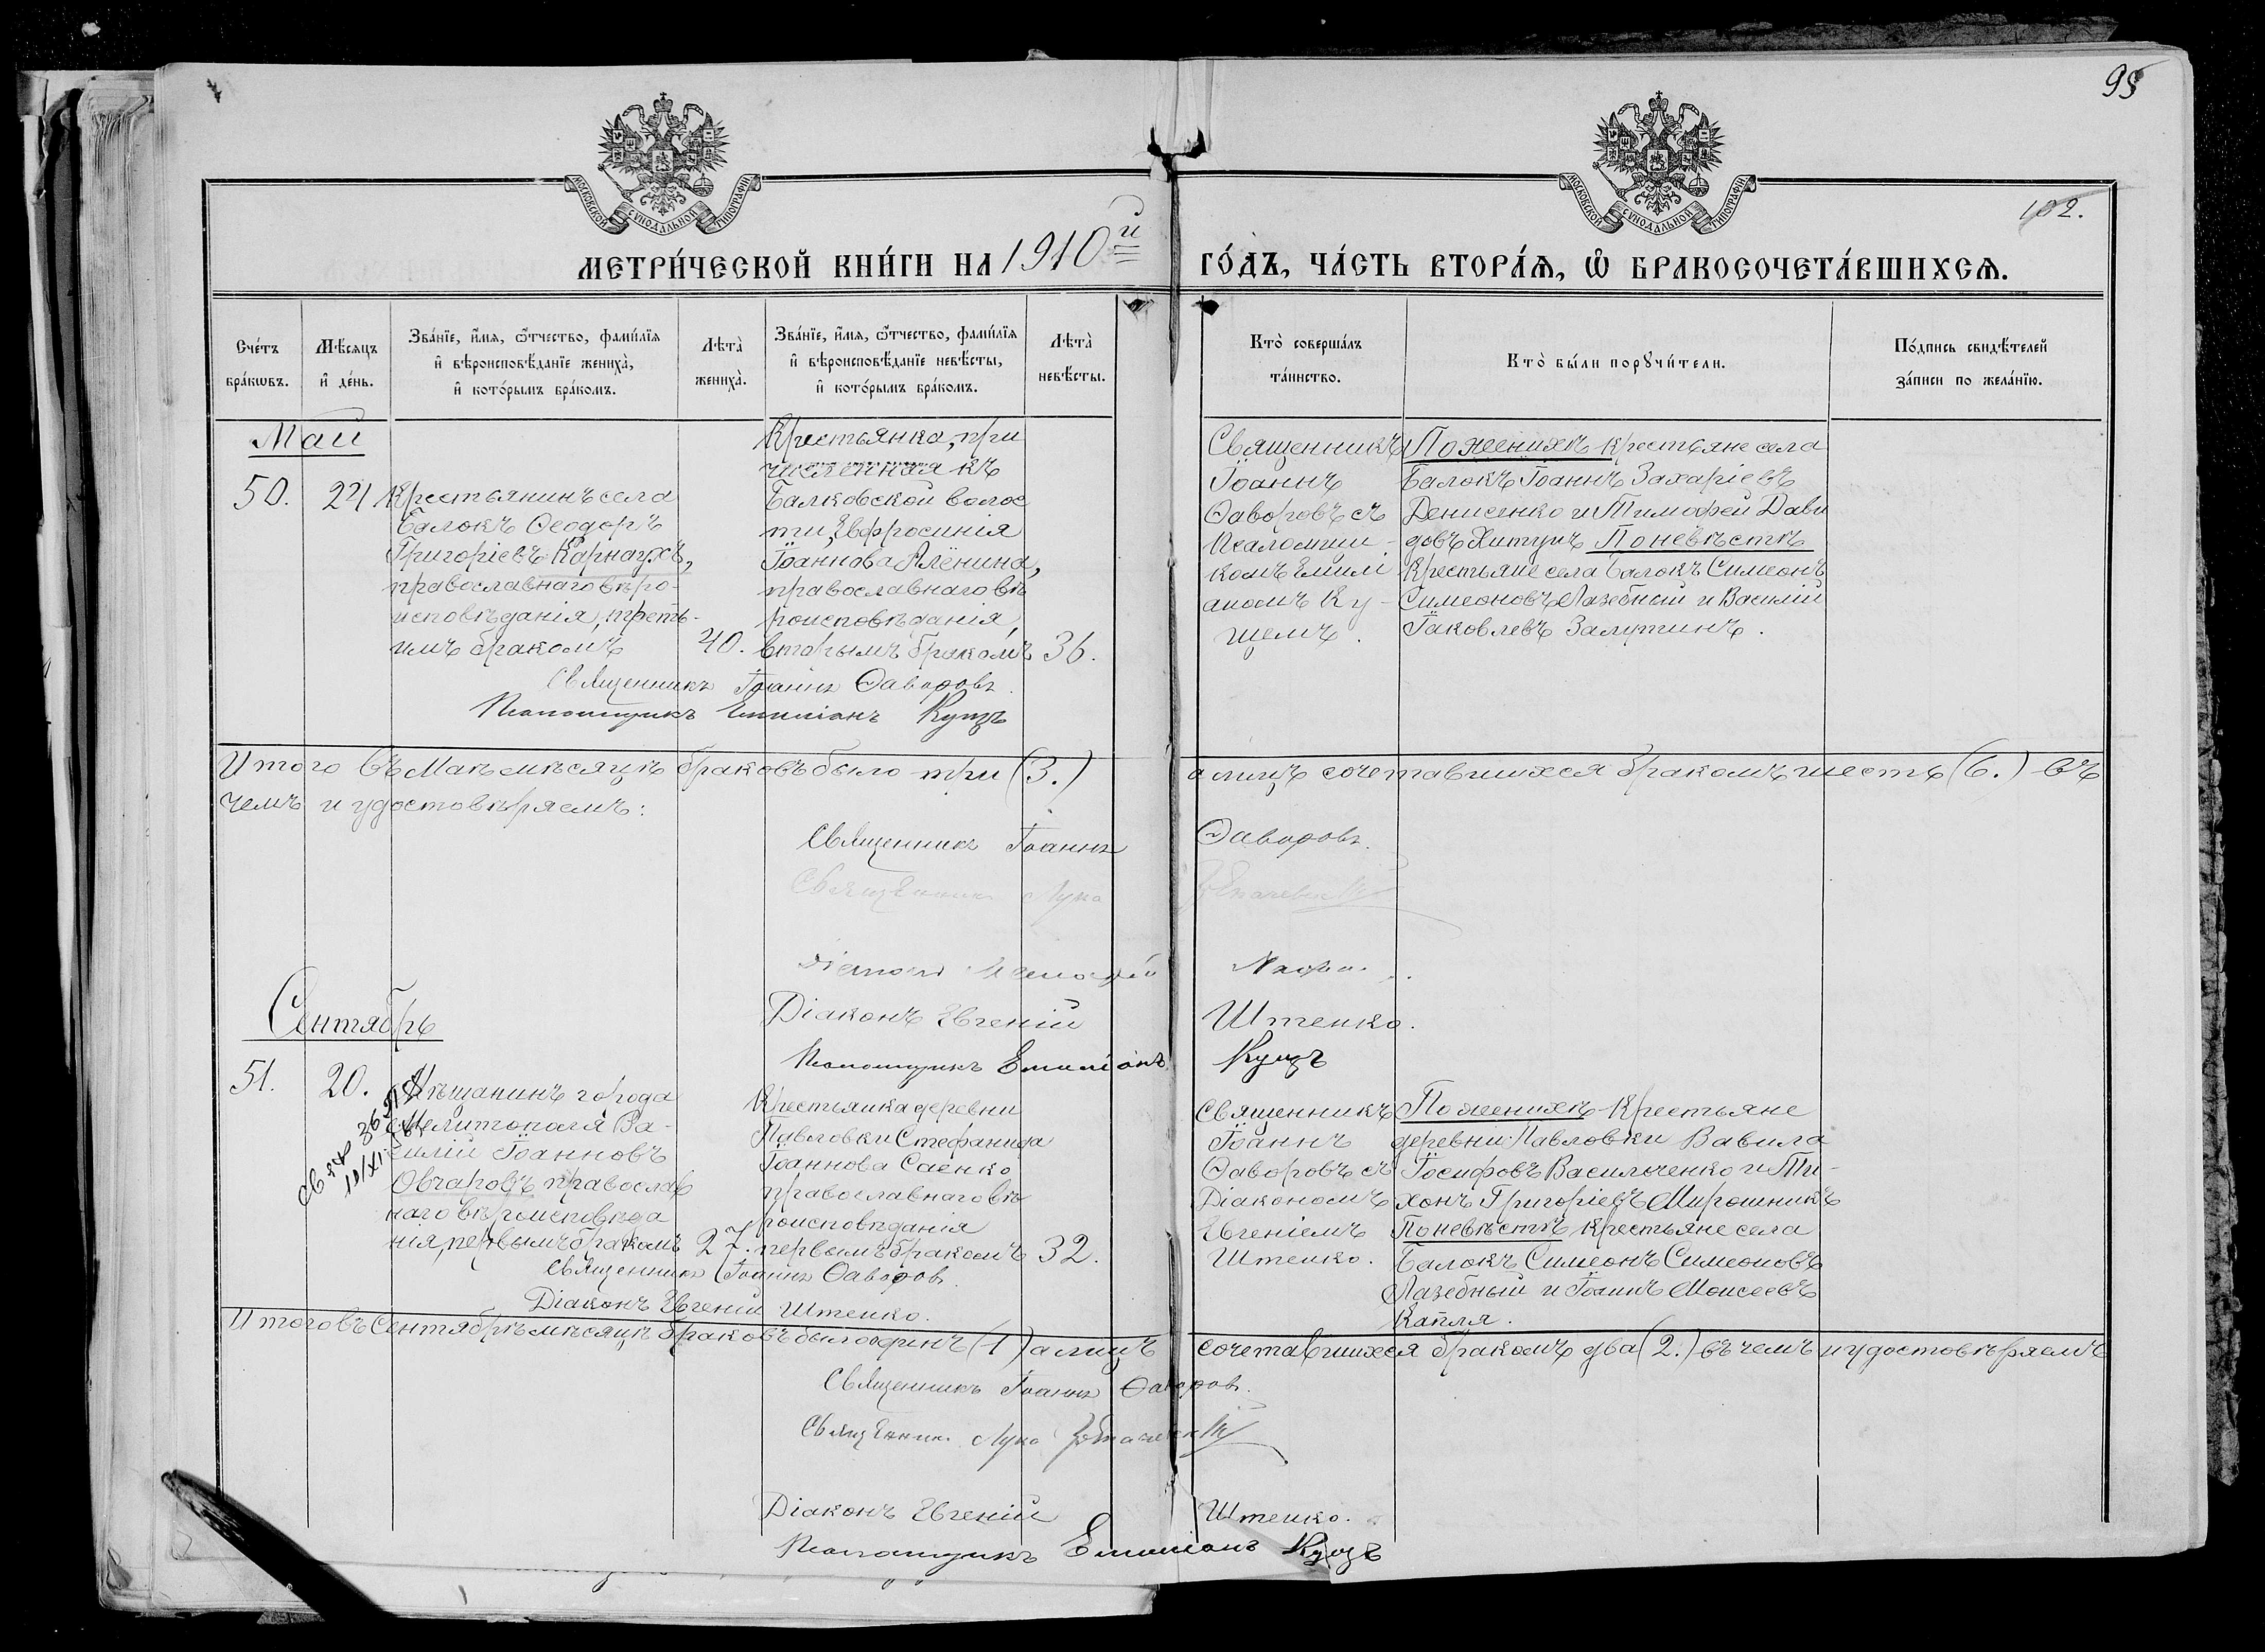 95
102.
МОСКОВСКОЙ СѴНОДАЛЬНОЙ ТИПОГРАФІИ
МОСКОВСКОЙ СѴНОДАЛЬНОЙ ТИПОГРАФІИ
МЕТРИ́ЧЕСКОЙ КНИ́ГИ НА 1910й ГО́ДЪ, ЧА́СТЬ ВТОРА́Ѧ, Ѡ҆ БРАКОСОЧЕТА́ВШИХСѦ.
Сче́тъ бра́кѡвъ.
Мѣ́сяцъ и҆ де́нь.
Зва́нїе, и҆́мя, ѻ҆́тчество, фами́лїя и҆ вѣроисповѣ́данїе жениха̀, и҆ кото́рымъ бра́комъ.
Лѣта̀ жениха̀.
Зва́нїе, и҆́мя, ѻ҆́тчество, фами́лїя и҆ вѣроисповѣ́данїе невѣ́сты, и҆ кото́рымъ бра́комъ.
Лѣта̀ невѣ́сты.
Кто̀ соверша́лъ та́инство.
Кто̀ бы́ли порꙋчи́тели.
По́дпись свидѣ́телей за́писи по жела́нїю.
Май
50.
Крестьянинъ села
Балокъ Ѳеодоръ
Григоріевъ Карнаухъ,
православнаго вѣро-
исповѣданія, треть-
имъ бракомъ
40.
Крестьянка, при
численная къ
Балковской волос
ти, Евфросинія
Іоаннова Алёнина,
православнаго вѣ
роисповѣданія,
вторымъ бракомъ
36.
Священникъ
Іоаннъ
Ѳаворовъ съ
Псаломщи-
комъ Емили
аномъ Ку-
щемъ.
По женихѣ крестьяне села
Балокъ Іоаннъ Захаріевъ
Денисенко и Тимофей Дави
довъ Хитунъ По невѣстѣ
Крестьяне села Балокъ Симеонъ
Симеоновъ Лазебный и Василій
Іаковлевъ Залутинъ.
Священникъ Іоаннъ Ѳаворовъ.
Псаломщикъ Емиліанъ Кущъ
Итого въ Маѣ мѣсяцѣ браковъ было три (3.) а лицъ сочетавшихся бракомъ шесть (6.) въ
чемъ и удостовѣряемъ:
Священникъ Іоаннъ Ѳаворовъ.
Священникъ Лука
Діаконъ Евгеній Штепко.
Псаломщикъ Емиліанъ Кущъ
Сентябрь
51.
20.
Мѣщанинъ города
Мелитополя Ва-
силій Іоанновъ
Овчаровъ православ
наго вѣроисповѣда
нія, первымъ бракомъ
27.
Крестьянка деревни
Павловки Стефанида
Іоаннова Саенко
православнаго вѣ
роисповѣданія
первымъ бракомъ
32.
Священникъ
Іоаннъ
Ѳаворовъ съ
Діакономъ
Евгеніемъ
Штепко.
По женихѣ Крестьяне
деревни Павловки Вавила
Іосифовъ Васильченко и Ти-
хонъ Григоріевъ Мирошникъ
По невѣстѣ крестьяне села
Балокъ Симеонъ Симеоновъ
Лазебный и Іоаннъ Моисеевъ
Капля.
Священникъ Іоаннъ Ѳаворовъ.
Діаконъ Евгеній Штепко.
Итого въ Сентябрѣ мѣсяцѣ браковъ было одинъ (1) а лицъ сочетавшихся бракомъ два (2.) въ чемъ и удостовѣряемъ
Священникъ Іоаннъ Ѳаворовъ.
Священникъ Лука
Діаконъ Евгеній Штепко.
Псаломщикъ Емиліанъ Кущъ